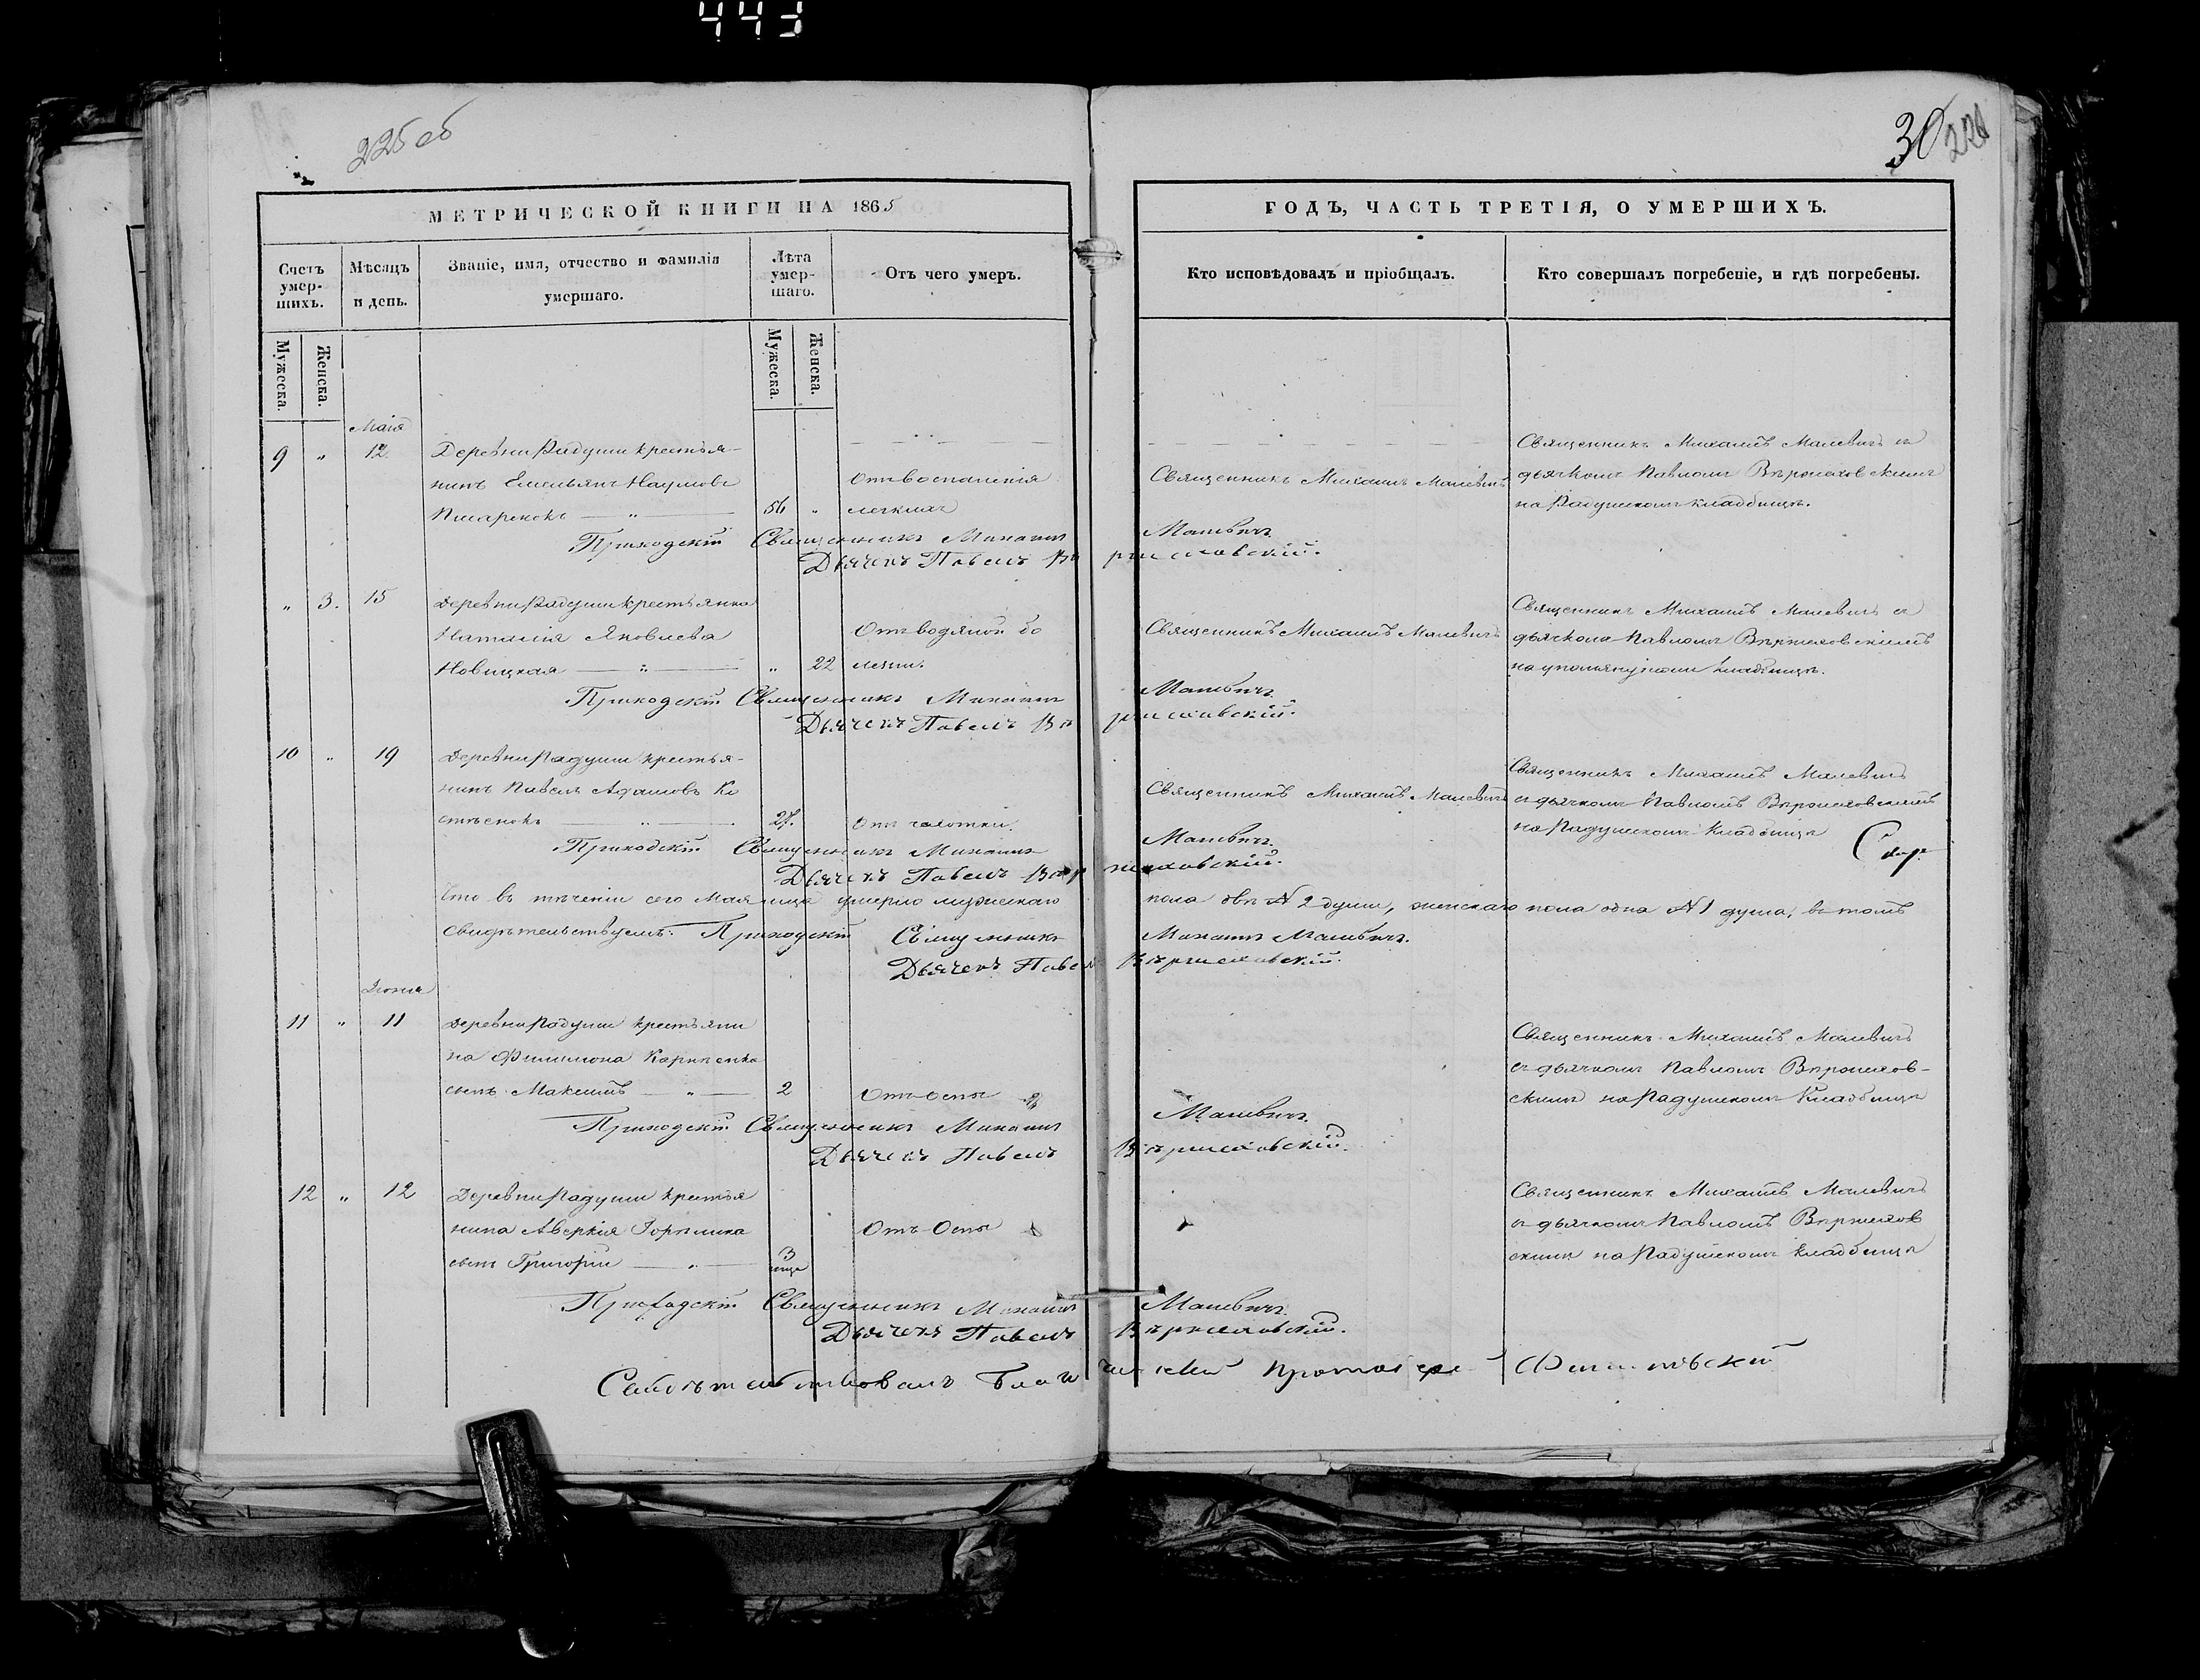 443
225 об
30 226
МЕТРИЧЕСКОЙ КНИГИ НА 1865
ГОДЪ, ЧАСТЬ ТРЕТІЯ, О УМЕРШИХЪ.
Счетъ умер-
шихъ.
Мѣсяцъ
и день.
Званіе, имя, отчество и фамилія
умершаго.
Лѣта
умер-
шаго.
Отъ чего умеръ.
Кто исповѣдовалъ и пріобщалъ.
Кто совершалъ погребеніе, и гдѣ погребены.
Мужеска.
Женска.
Мужеска.
Женска.
Маія
9 " 12 Деревни Радуши крестья-
нинъ Емельянъ Наумовъ
Писаренокъ — " — 56 "
Отъ воспаленія
легкихъ
Священникъ Михаилъ Малевичъ
Священникъ Михаилъ Малевичъ съ
дьячкомъ Павломъ Вержеховскимъ
на Радушскомъ кладбищѣ.
Приходскій Священникъ Михаилъ Малевичъ
Дьячекъ Павелъ Вержеховскій.
" 3. 15 Деревни Радуши крестьянка
Наталія Яковлева
Новицкая — " — " 22
Отъ водяной бо
лезни.
Священникъ Михаилъ Малевичъ
Священникъ Михаилъ Малевичъ съ
дьячкомъ Павломъ Вержеховскимъ
на упомянутомъ кладбищѣ.
Приходскій Священникъ Михаилъ Малевичъ
Дьячекъ Павелъ Вержеховскій.
10 " 19 Деревни Радуши крестья-
нинъ Павелъ Адамовъ Ко
стенокъ — " — 27.
Отъ чахотки.
Священникъ Михаилъ Малевичъ
Священникъ Михаилъ Малевичъ
съ дьячкомъ Павломъ Вержеховскимъ
на Радушскомъ кладбищѣ
Приходскій Священникъ Михаилъ Малевичъ
Дьячекъ Павелъ Вержеховскій.
Что въ теченіи сего Мая м-ца умерло мужескаго пола двѣ № 2 души, женскаго пола одна № 1 душа, въ томъ
свидѣтельствуемъ. Приходскій Священникъ Михаилъ Малевичъ.
Дьячекъ Павелъ Вержеховскій.
Іюня
11 " 11 Деревни Радуши крестьяни
на Филимона Карпенка
сынъ Максимъ — " — 2
Отъ оспы
Священникъ Михаилъ Малевичъ
съ дьячкомъ Павломъ Вержехов-
скимъ на Радушскомъ кладбищѣ
Приходскій Священникъ Михаилъ Малевичъ.
Дьячекъ Павелъ Вержеховскій.
12 " 12 Деревни Радуши крестья
нина Аверкія
сынъ Григорій — " — 3
Отъ Оспы
Священникъ Михаилъ Малевичъ
съ дьячкомъ Павломъ Вержехов
скимъ на Радушскомъ кладбищѣ
Приходскій Священникъ Михаилъ Малевичъ.
Дьячекъ Павелъ Вержеховскій.
Протоіерей